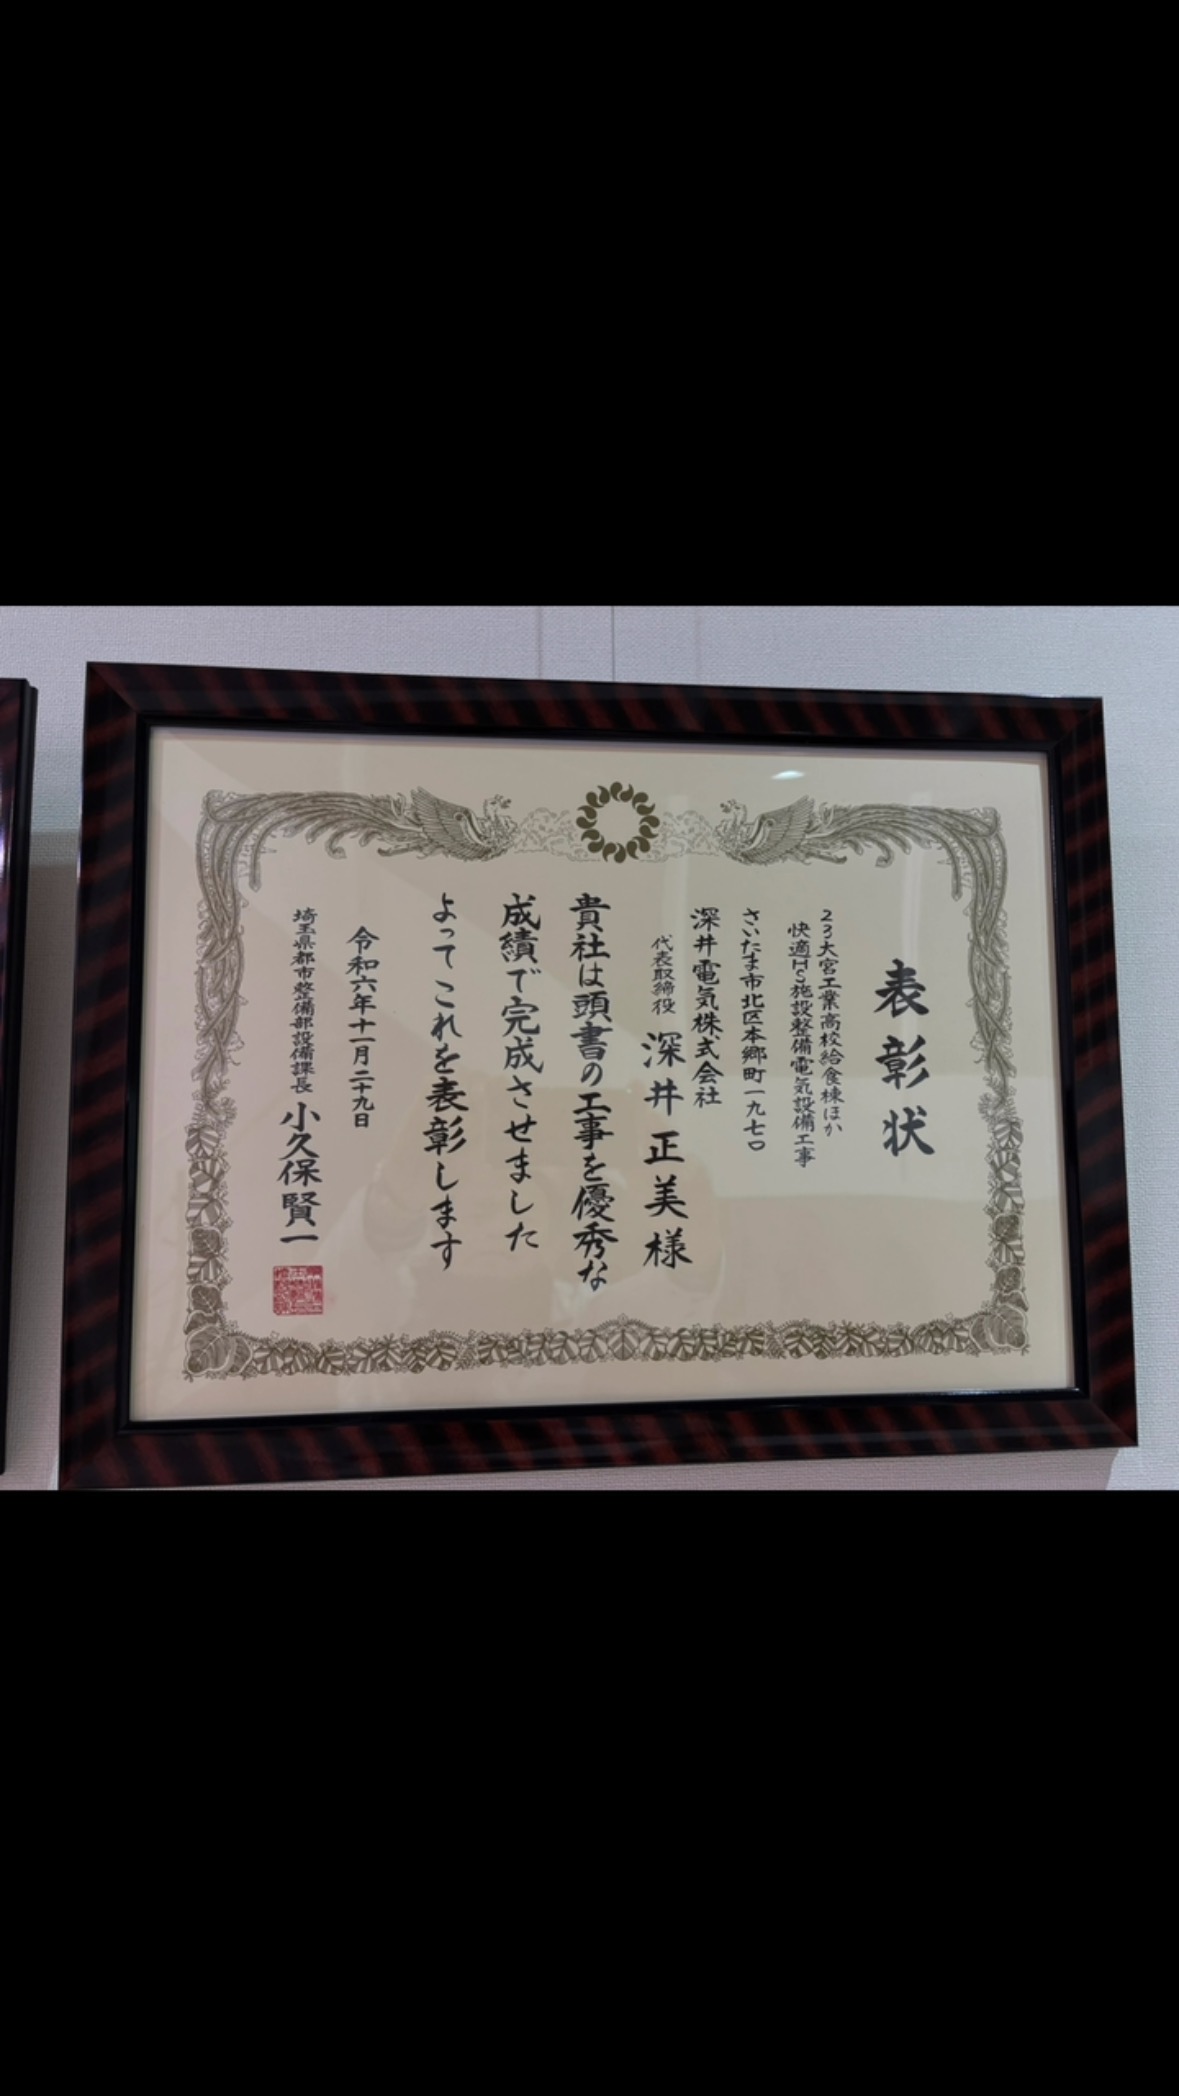 表彰状
23大宮工業高校給食棟ほか
快適HS施設整備電気設備工事
さいたま市北区本郷町一九七〇
深井電気株式会社
代表取締役 深井正美様
貴社は頭書の工事を優秀な
成績で完成させました
よってこれを表彰します
令和六年十一月二十九日
埼玉県都市整備部設備課長 小久保賢一